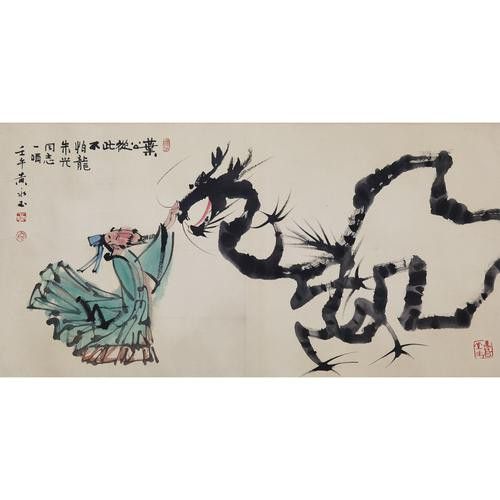 葉公從此不
怕龍
朱光
同志
一哂
壬午黄永玉